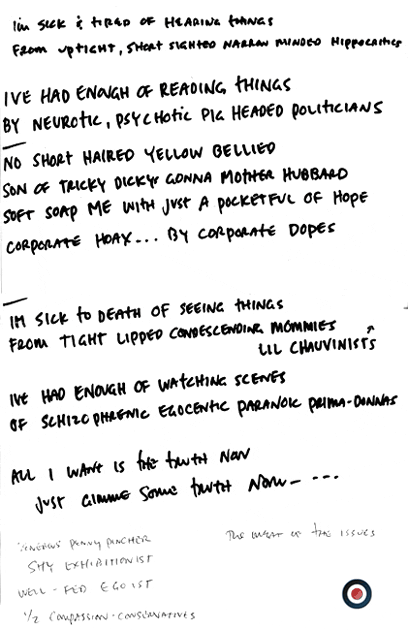 I'm SICK & tIRED OF HEARING thINGS
FROM uptIGHT, SHORT SIGHTED NARROW MINDED HIPPOCRITICS
IVE HAD ENOUGH OF READING tHINGS
BY NEUROTIC, PSYCHOTIC PIG HEADED POLITICIANS
NO SHORT HAIRED YELLOW BELLIED
SON OF TRICKY DICKYS GONNA MOTHER HUBBARD
SOFT SOAP ME WITH JUST A POCKETFUL OF HOPE
CORPORATE HOAX... BY CORPORATE DOPES
IM SICK tO DEATH OF SEEING tHINGS
FROM TIGHT LIPPED CONDESCENDING MOMMIES
LIL CHAUVINISTS
IVE HAD ENOUGH OF WATCHING SCENES
OF SCHIZOPHRENIC EGOCENTIC PARANOIC PRIMA-DONNAS
ALL I WANT IS the tRUTH NOW
JUST GIMME SOME tRUTH NOW- ...
PENNY PINCHER
SHY EXHIBITIONIST
WELL-FED EGOIST
1/2 COMPASSION-CONSERVATIVES
THE OF the ISSUES